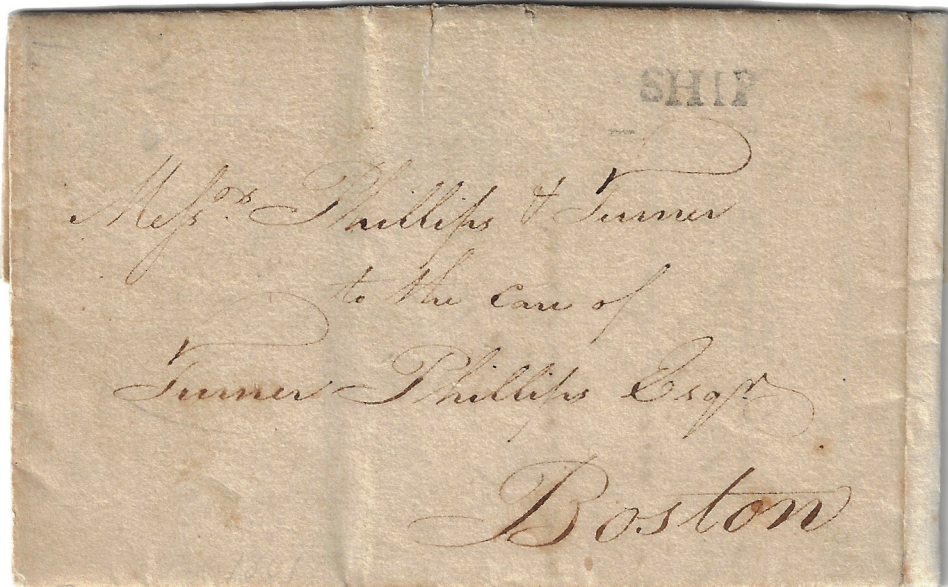 SHIP
Messrs. Phillips & Turner
to the care of
Turner Phillips Esqr.
Boston